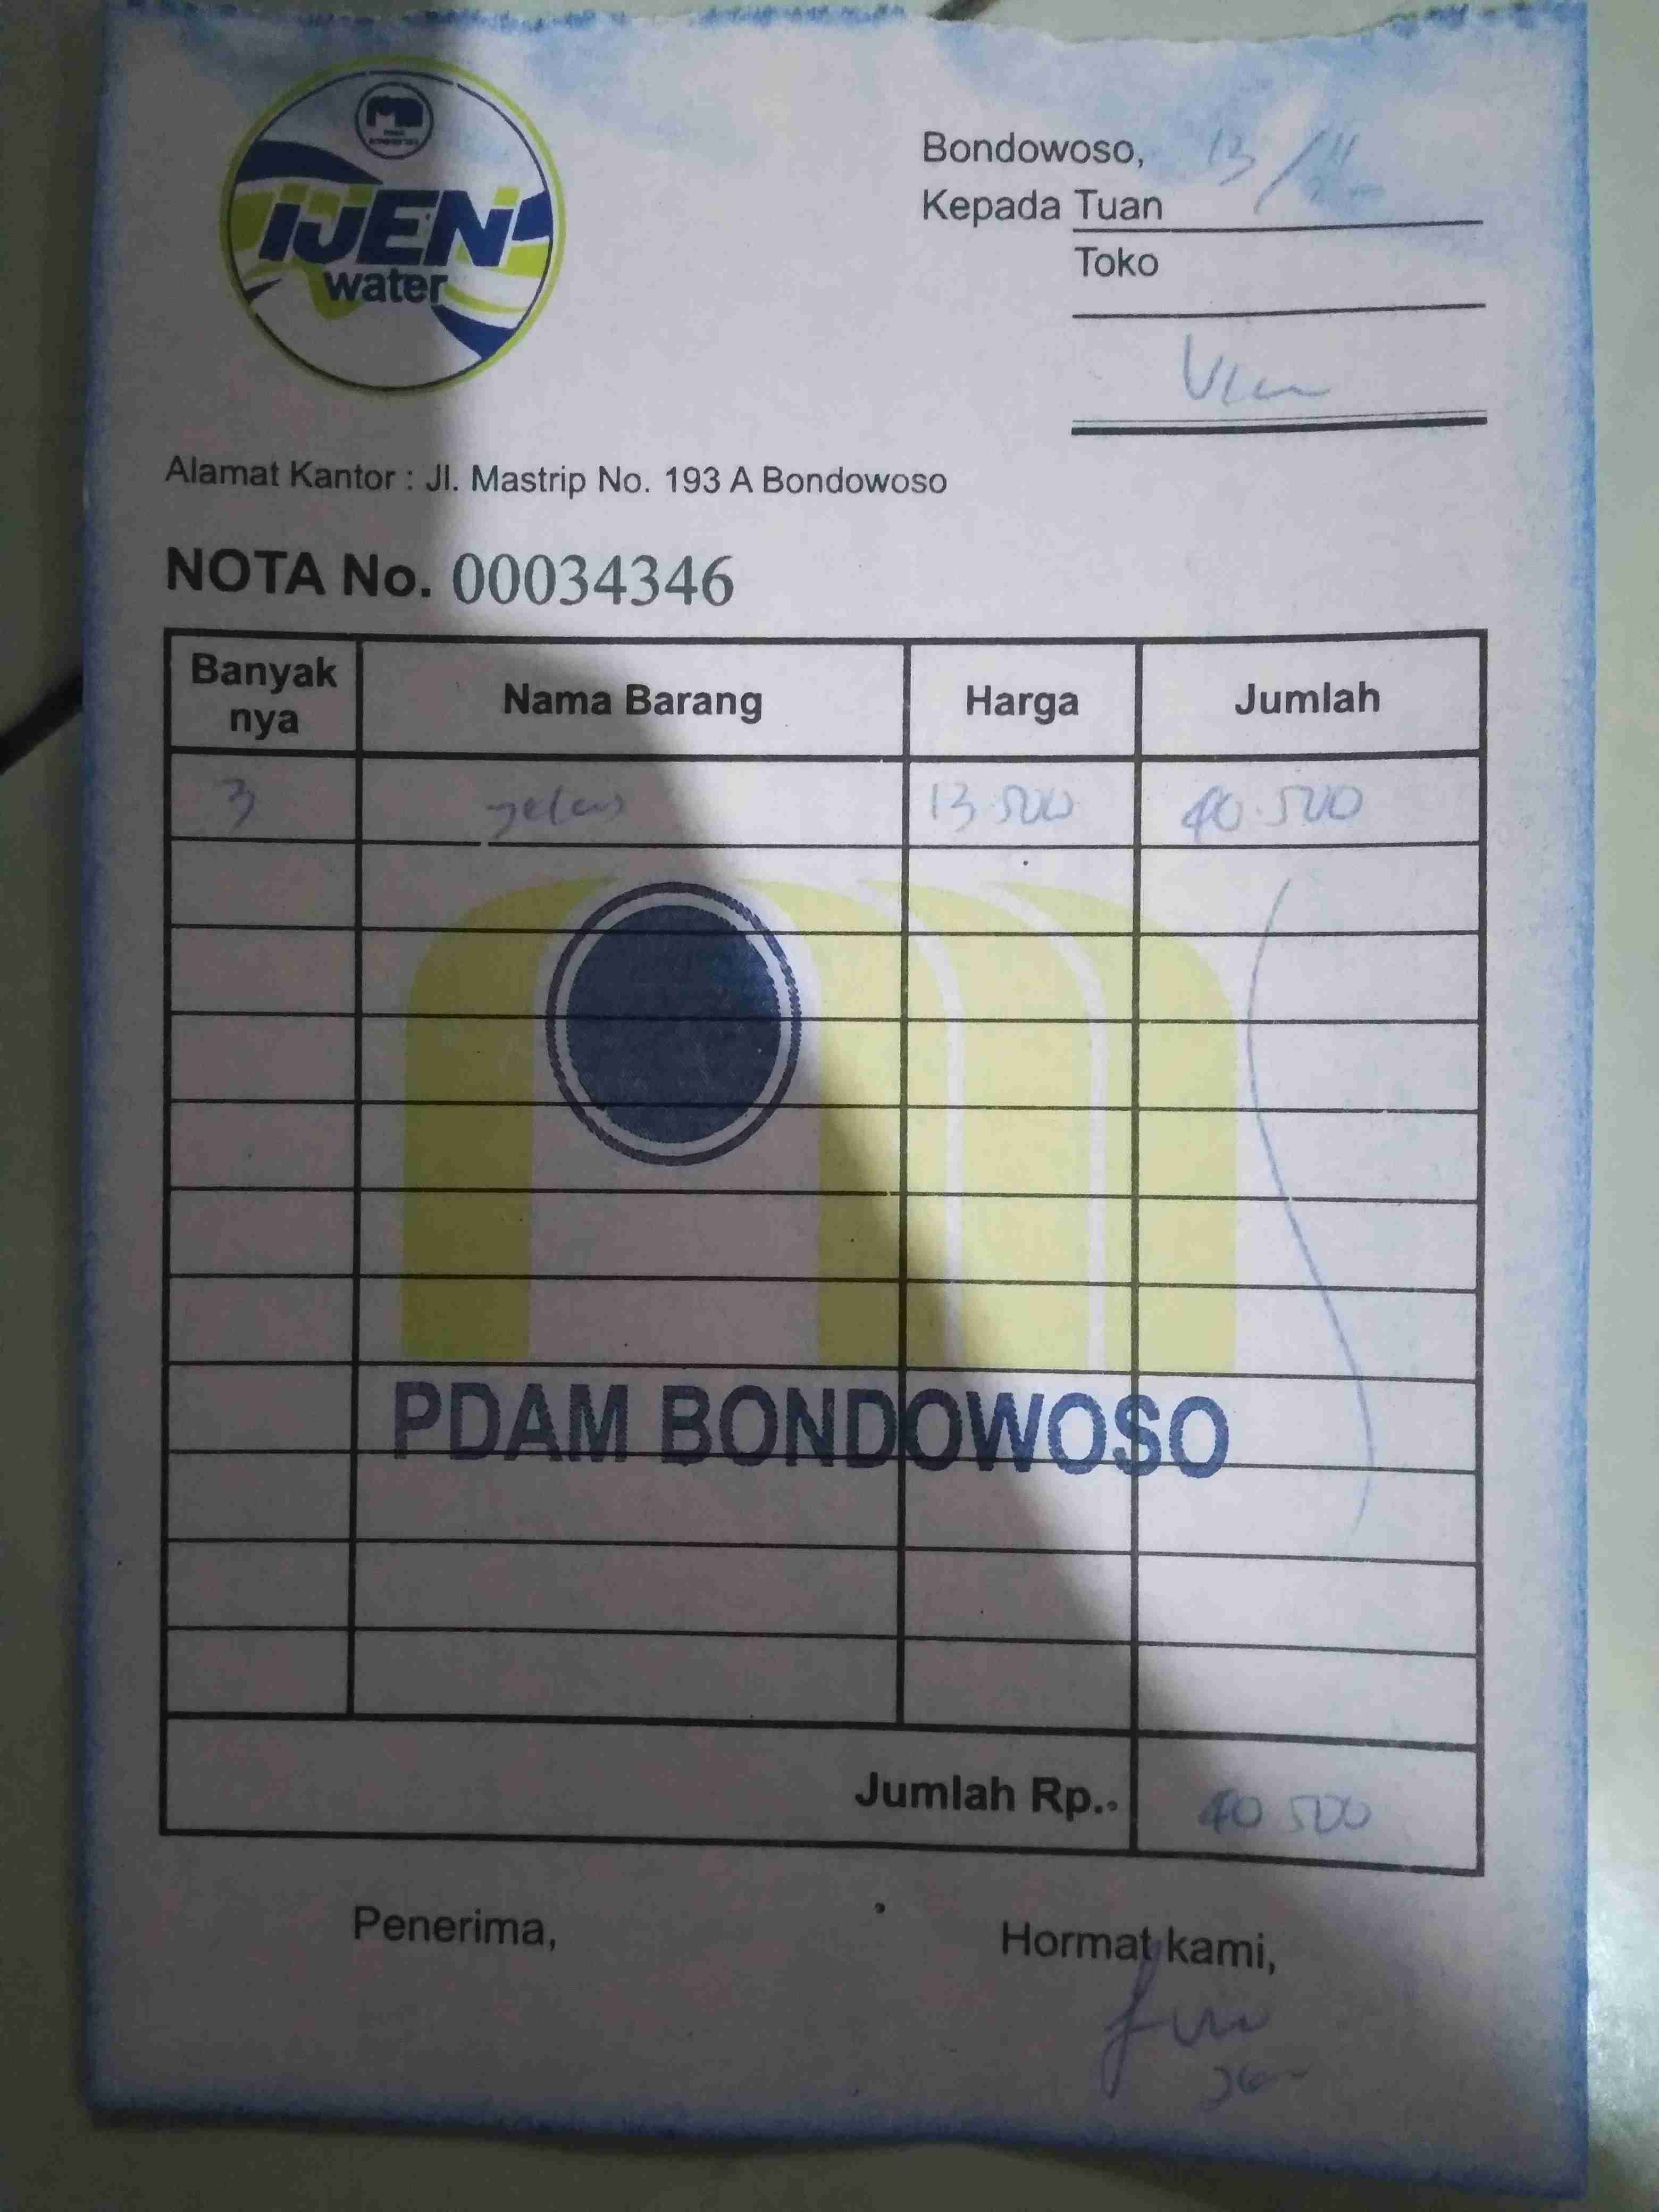 IJEN
water
Bondowoso, 13/11
Kepada Tuan
Toko
Alamat Kantor : Jl. Mastrip No. 193 A Bondowoso
NOTA No. 00034346
Banyak nya Nama Barang Harga Jumlah
3 gelas 13.500 40.500
PDAM BONDOWOSO
Jumlah Rp.. 40 500
Penerima, Hormat kami,